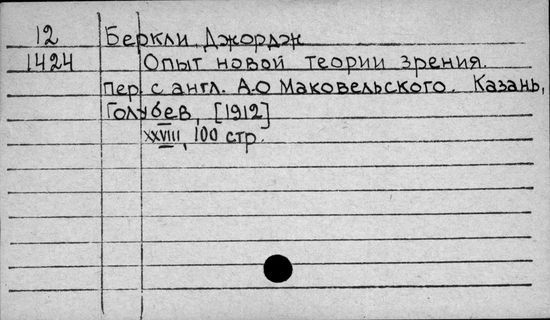 12 Беркли, Джордж
1424 Опыт новой теории зрения.
Пер. с англ. А.О Маковельского. Казань,
Голубев, [1912]
XXVIII, 100 стр.